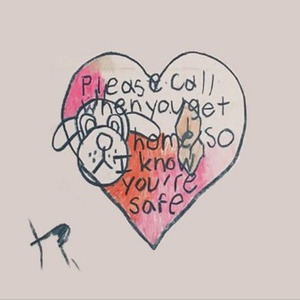 Please Call
when you get
home so
I know
you're
safe